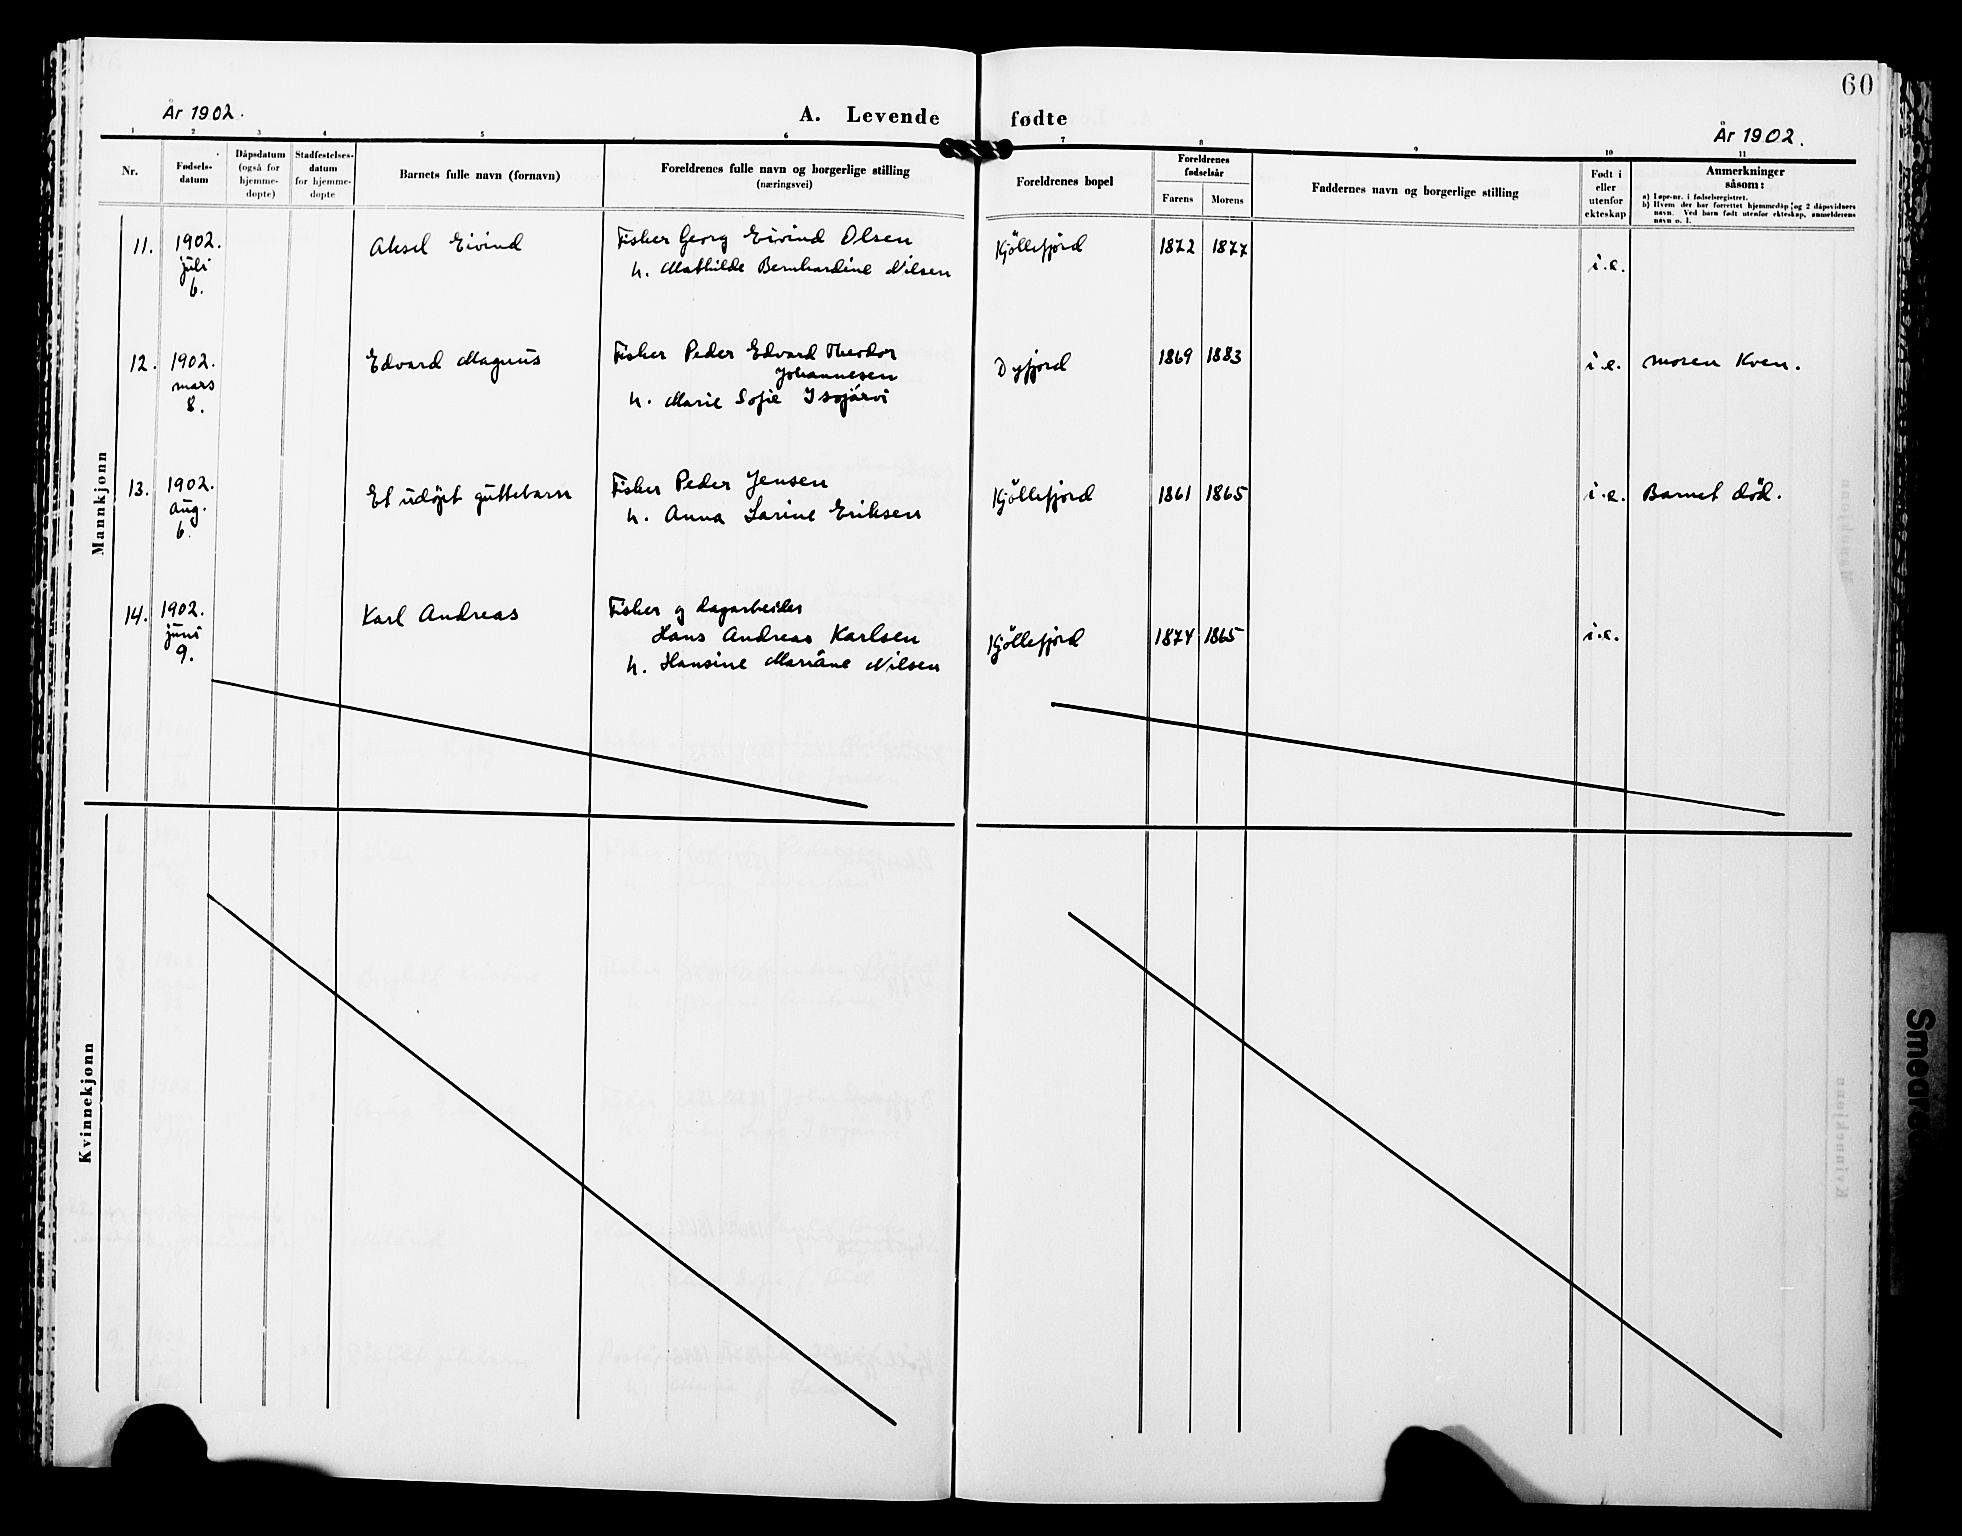 60
År 1902.
A. Levende fødte
År 1902.
1 2 3 4 5 6 7 8 9 10 11
Nr.
Fødsels-
datum
Dåpsdatum
(også for
hjemme-
døpte)
Stadfestelses-
datum
for hjemme-
døpte
Barnets fulle navn (fornavn)
Foreldrenes fulle navn og borgerlige stilling
(næringsvei)
Foreldrenes bopel
Foreldrenes
fødselsår
Farens Morens
Faddernes navn og borgerlige stilling
Født i
eller
utenfor
ekteskap
Anmerkninger
såsom:
a) Løpe-nr. i fødselsregistret.
b) Hvem der har forrettet hjemmedåp, og 2 dåpsvidners
navn. Ved barn født utenfor ekteskap, anmelderens
navn o. l.
Mannkjønn
11. 1902. Aksel Eivind Fisker Georg Eivind Olsen Kjöllefjord 1872 1877 i.e.
juli h. Mathilde Bernhardine Nilsen
6.
12. 1902. Edvard Magnus Fisker Peder Edvard Theodor Dyfjord 1869 1883 i.e. Moren Kven.
mars Johannesen
8. h. Marie Sofie Isojärvi
13. 1902. Et udøpt guttebarn Fisker Peder Jensen Kjöllefjord 1861 1865 i.e. Barnet død.
aug. h. Anna Sarine Eriksen
6.
14. 1902. Karl Andreas Fisker og dagarbeider
juni Hans Andreas Karlsen Kjöllefjord 1874 1865 i.e.
9. h. Hansine Mariane Nilsen
Kvinnekjønn